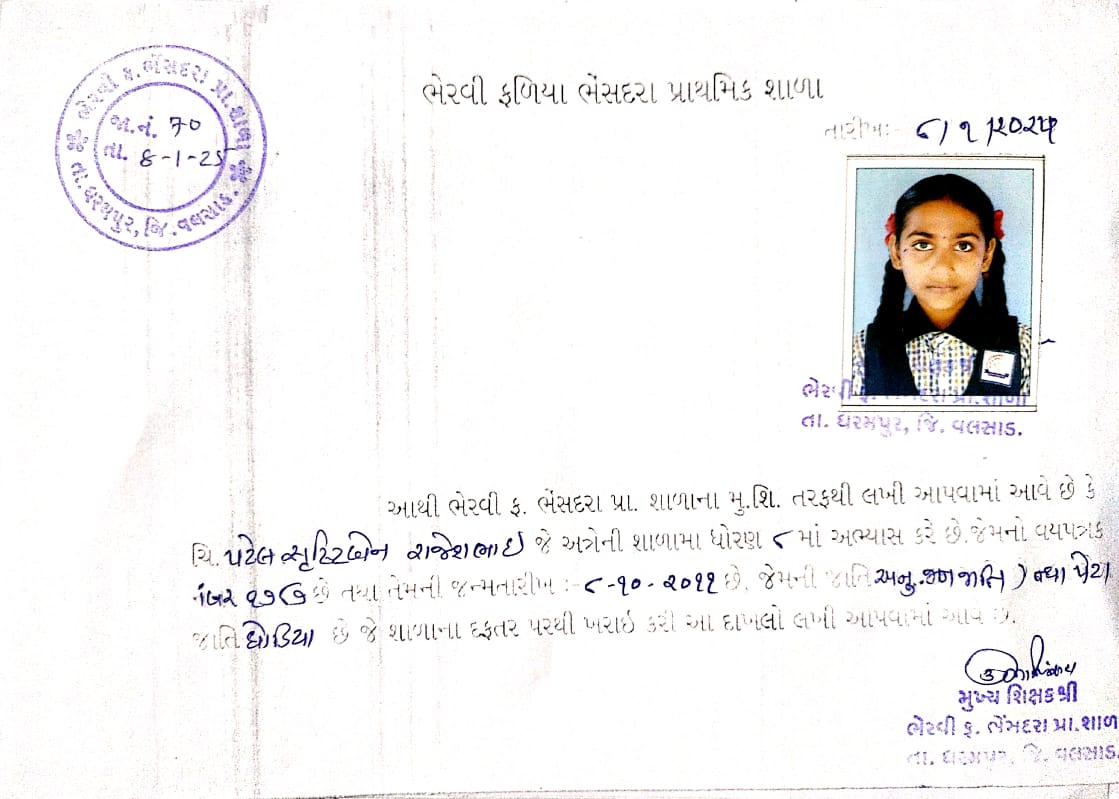 ભેરવી ફ. ભેંસદરા પ્રા. શાળા
જા.નં. 70
તા. 8-1-25
તા. ધરમપુર, જિ. વલસાડ.
ભેરવી ફળિયા ભેંસદરા પ્રાથમિક શાળા
તારીખઃ- ૮/૧/૨૦૨૫
ભેરવી ફ. ભેંસદરા પ્રા.શાળા
તા. ધરમપુર, જિ. વલસાડ.
આથી ભેરવી ફ. ભેંસદરા પ્રા. શાળાના મુ.શિ. તરફથી લખી આપવામાં આવે છે કે
ચિ. પટેલ સૃષ્ટિબેન રાજેશભાઇ જે અત્રેની શાળામા ધોરણ ૮ માં અભ્યાસ કરે છે.જેમનો વયપત્રક
નંબર ૧૭૭ છે તથા તેમની જન્મતારીખ :- ૮-૧૦-૨૦૧૧ છે, જેમની જાતિ અનુ.જનજાતિ ) તથા પેટા
જાતિ ધોડિયા છે જે શાળાના દફતર પરથી ખરાઇ કરી આ દાખલો લખી આપવામાં આવે છે.
મુખ્ય શિક્ષકશ્રી
ભેરવી ફ. ભેંસદરા પ્રા.શાળ
તા. ધરમપુર, જિ. વલસાડ.